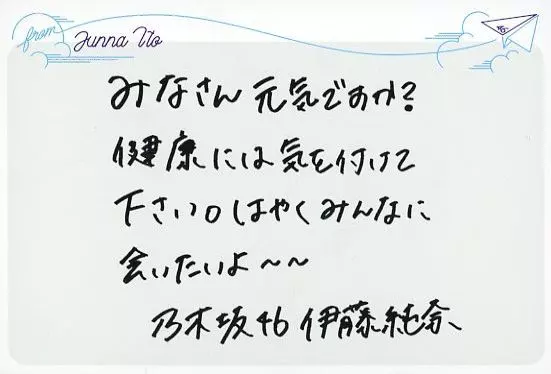 from Junna Ito
みなさん 元気ですか?
健康には気を付けて
下さい。はやくみんなに
会いたいよ〜〜
乃木坂46 伊藤純奈、